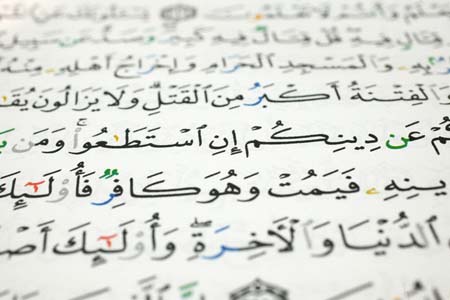 وَأَنتُمْ لَا تَعْلَمُونَ
قِتَالٍ فِيهِ قُلْ قِتَالٌ فِيهِ كَبِيرٌ وَصَدٌّ عَن سَبِيلِ
بِهِۦ وَٱلْمَسْجِدِ ٱلْحَرَامِ وَإِخْرَاجُ أَهْلِهِۦ مِنْهُ
وَٱلْفِتْنَةُ أَكْبَرُ مِنَ ٱلْقَتْلِ وَلَا يَزَالُونَ
عَن دِينِكُمْ إِنِ ٱسْتَطَٰعُوا۟ وَمَن
فَيَمُتْ وَهُوَ كَافِرٌ فَأُو۟لَٰٓئِكَ
ٱلدُّنْيَا وَٱلْءَاخِرَةِ ۖ وَأُو۟لَٰٓئِكَ